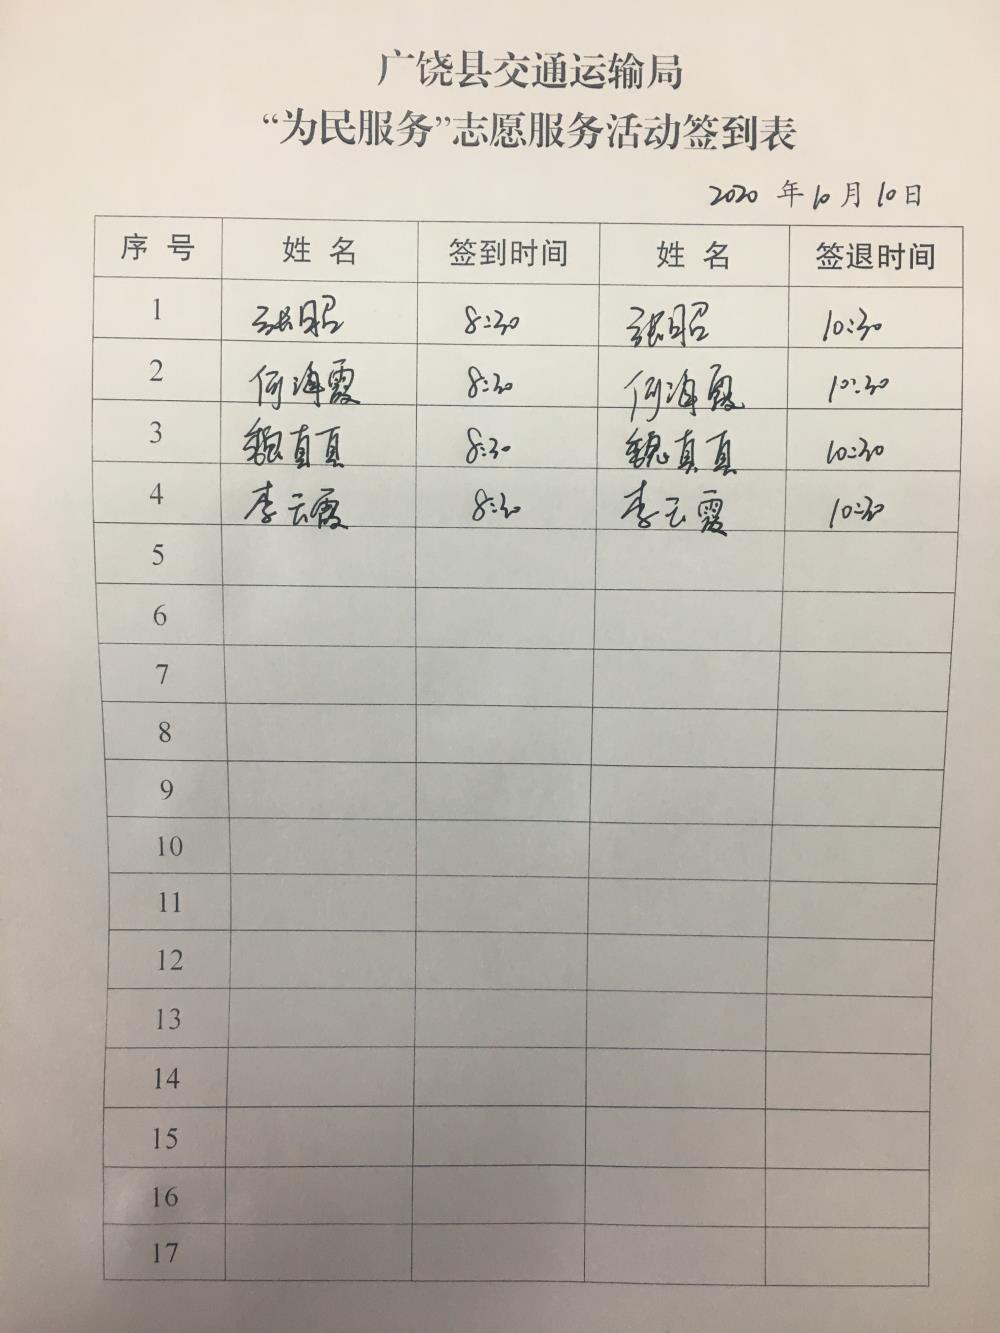 广饶县交通运输局
“为民服务”志愿服务活动签到表
2020 年 10 月 10 日
序 号 姓 名 签到时间 姓 名 签退时间
1 张昭 8:30 张昭 10:30
2 何海霞 8:30 何海霞 10:30
3 魏真真 8:30 魏真真 10:30
4 李云霞 8:30 李云霞 10:30
5
6
7
8
9
10
11
12
13
14
15
16
17